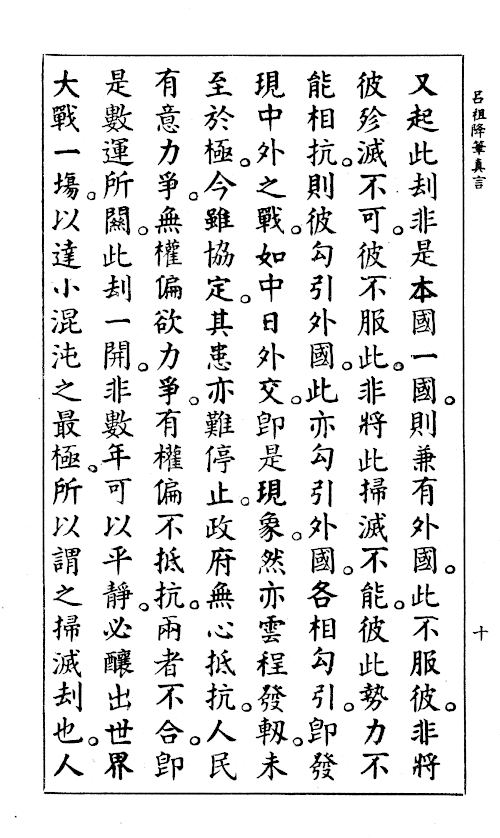 呂祖降筆真言
又起此刦非是本國一國。則兼有外國。此不服彼。非將
彼殄滅不可。彼不服此。非將此掃滅不能。彼此勢力不
能相抗。則彼勾引外國。此亦勾引外國。各相勾引。卽發
現中外之戰。如中日外交。卽是現象。然亦雲程發軔。未
至於極。今雖協定。其患亦難停止。政府無心抵抗。人民
有意力爭。無權偏欲力爭。有權偏不抵抗。兩者不合。卽
是數運所關。此刦一開。非數年可以平靜。必釀出世界
大戰一塲。以達小混沌之最極。所以謂之掃滅刦也。人
十